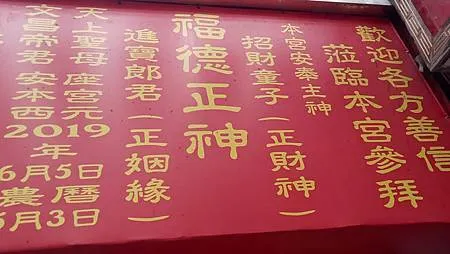 歡迎各方善信
蒞臨本宮參拜
本宮安奉主神
招財童子(正財神)
福德正神
進寶郎君(正姻緣)
天上聖母
文昌帝君
安座
本宮
西元
2019
年
6月5日
農曆
5月3日